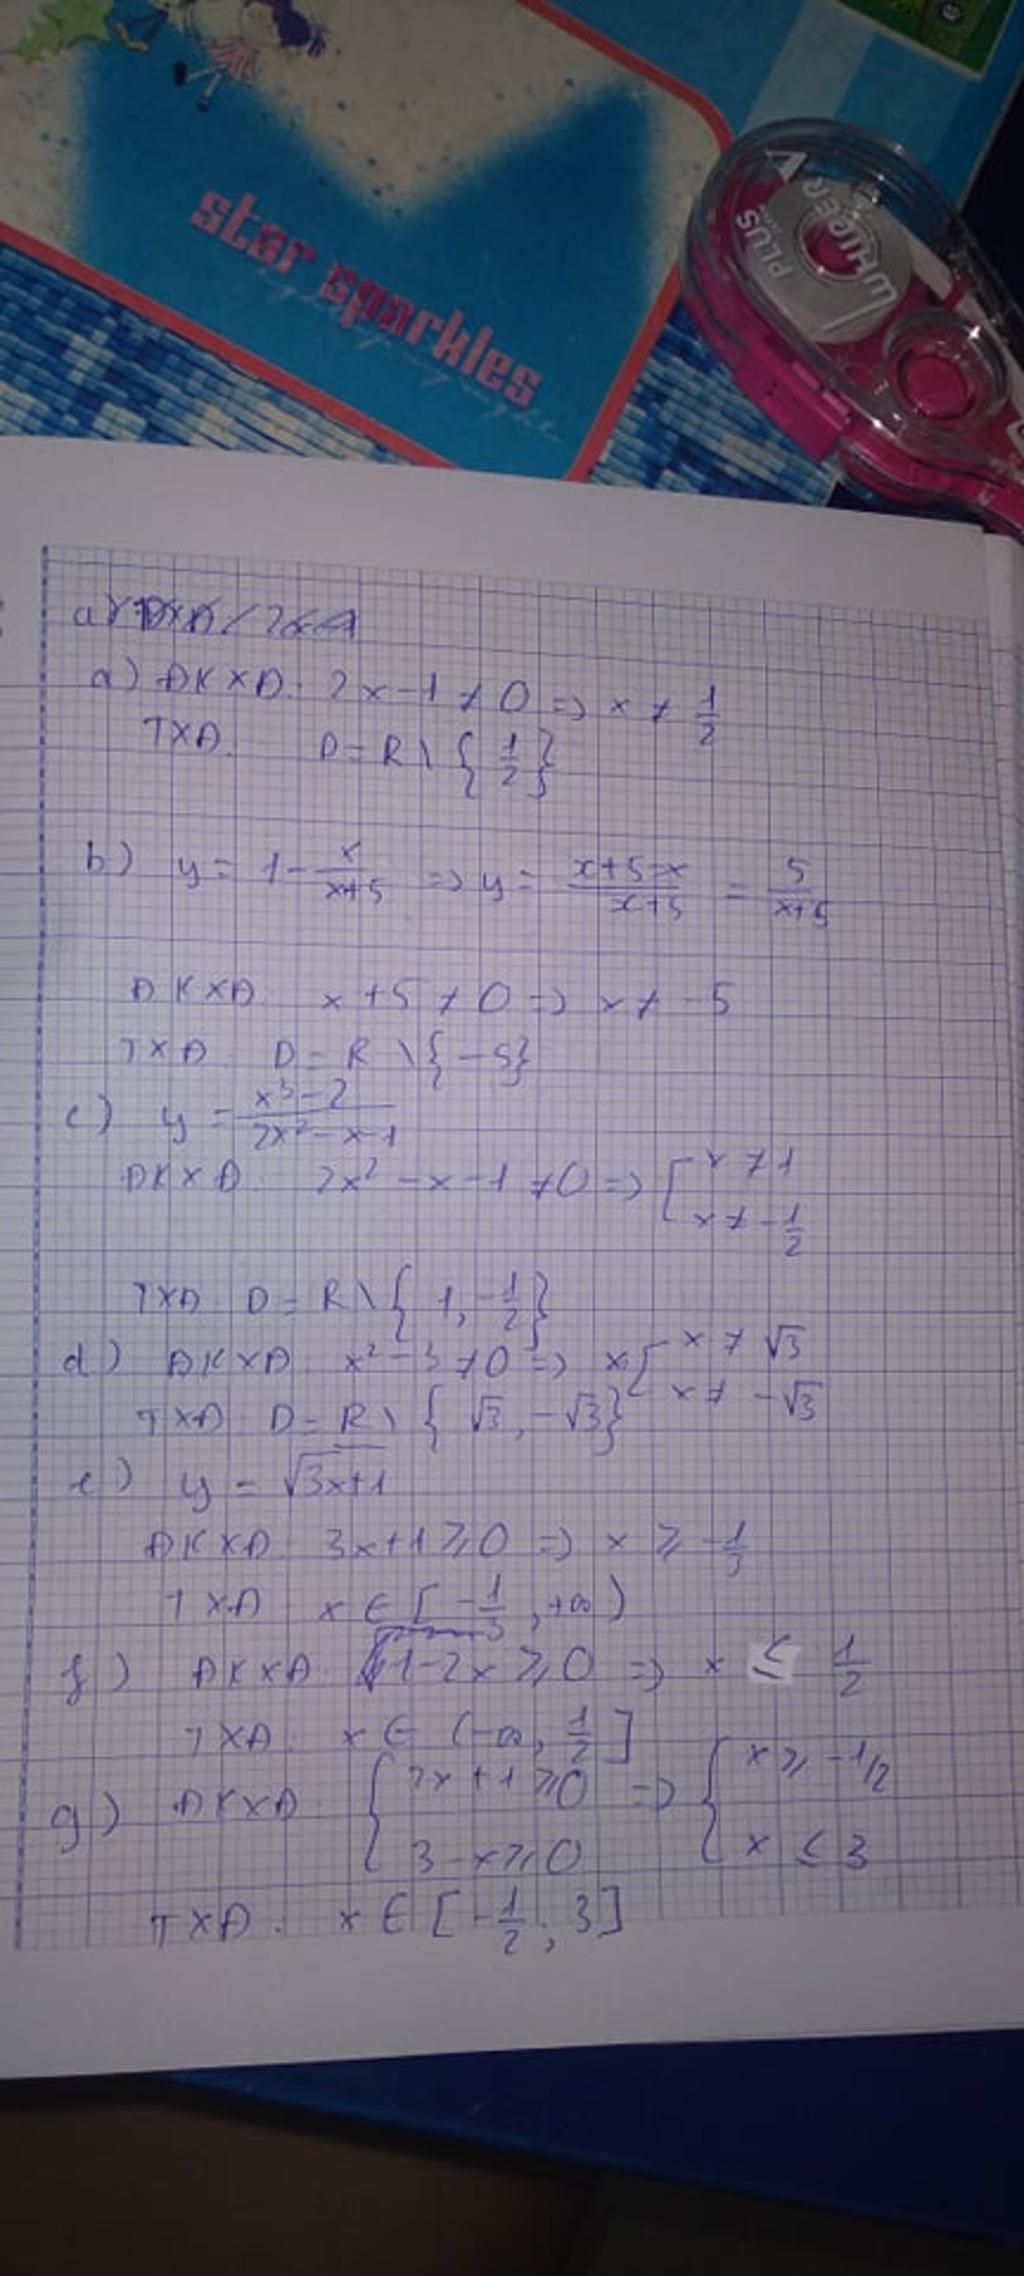 star sparkles
WHIPER
PLUS
a) ĐKXĐ: 2x-1 ≠ 0 => x ≠ 1/2
TXĐ. D = R \ { 1/2 }
b) y = 1 - x/(x+5) => y = (x+5-x)/(x+5) = 5/(x+5)
ĐKXĐ x+5 ≠ 0 => x ≠ -5
TXĐ D = R \ { -5 }
c) y = (x³-2)/(2x²-x-1)
ĐKXĐ. 2x²-x-1 ≠ 0 => [ x ≠ 1
x ≠ -1/2
TXĐ. D = R \ { 1, -1/2 }
d) ĐKXĐ x²-3 ≠ 0 => [ x ≠ √3
x ≠ -√3
TXĐ. D = R \ { √3, -√3 }
e) y = √(3x+1)
ĐKXĐ. 3x+1 ≥ 0 => x ≥ -1/3
TXĐ x ∈ [ -1/3, +∞ )
f) ĐKXĐ. 1-2x ≥ 0 => x ≤ 1/2
TXĐ. x ∈ (-∞, 1/2 ]
g) ĐKXĐ { 2x+1 ≥ 0 => { x ≥ -1/2
3-x ≥ 0 x ≤ 3
TXĐ. x ∈ [ -1/2; 3 ]